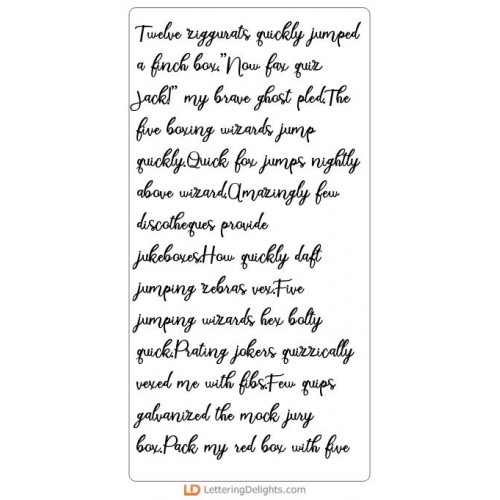 Twelve ziggurats quickly jumped
a finch box."Now fax quiz
Jack!" my brave ghost pled.The
five boxing wizards jump
quickly.Quick fox jumps nightly
above wizard.Amazingly few
discotheques provide
jukeboxes.How quickly daft
jumping zebras vex.Five
jumping wizards hex bolty
quick.Prating jokers quizzically
vexed me with fibs.Few quips
galvanized the mock jury
box.Pack my red box with five
LD LetteringDelights.com